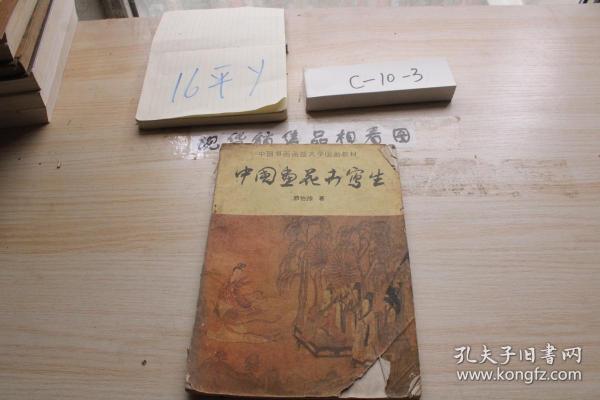 16平Y
C-10-3
现货销售品相看图
中国书画函授大学国画教材
中国画花卉写生
著
孔夫子旧书网
www.kongfz.com